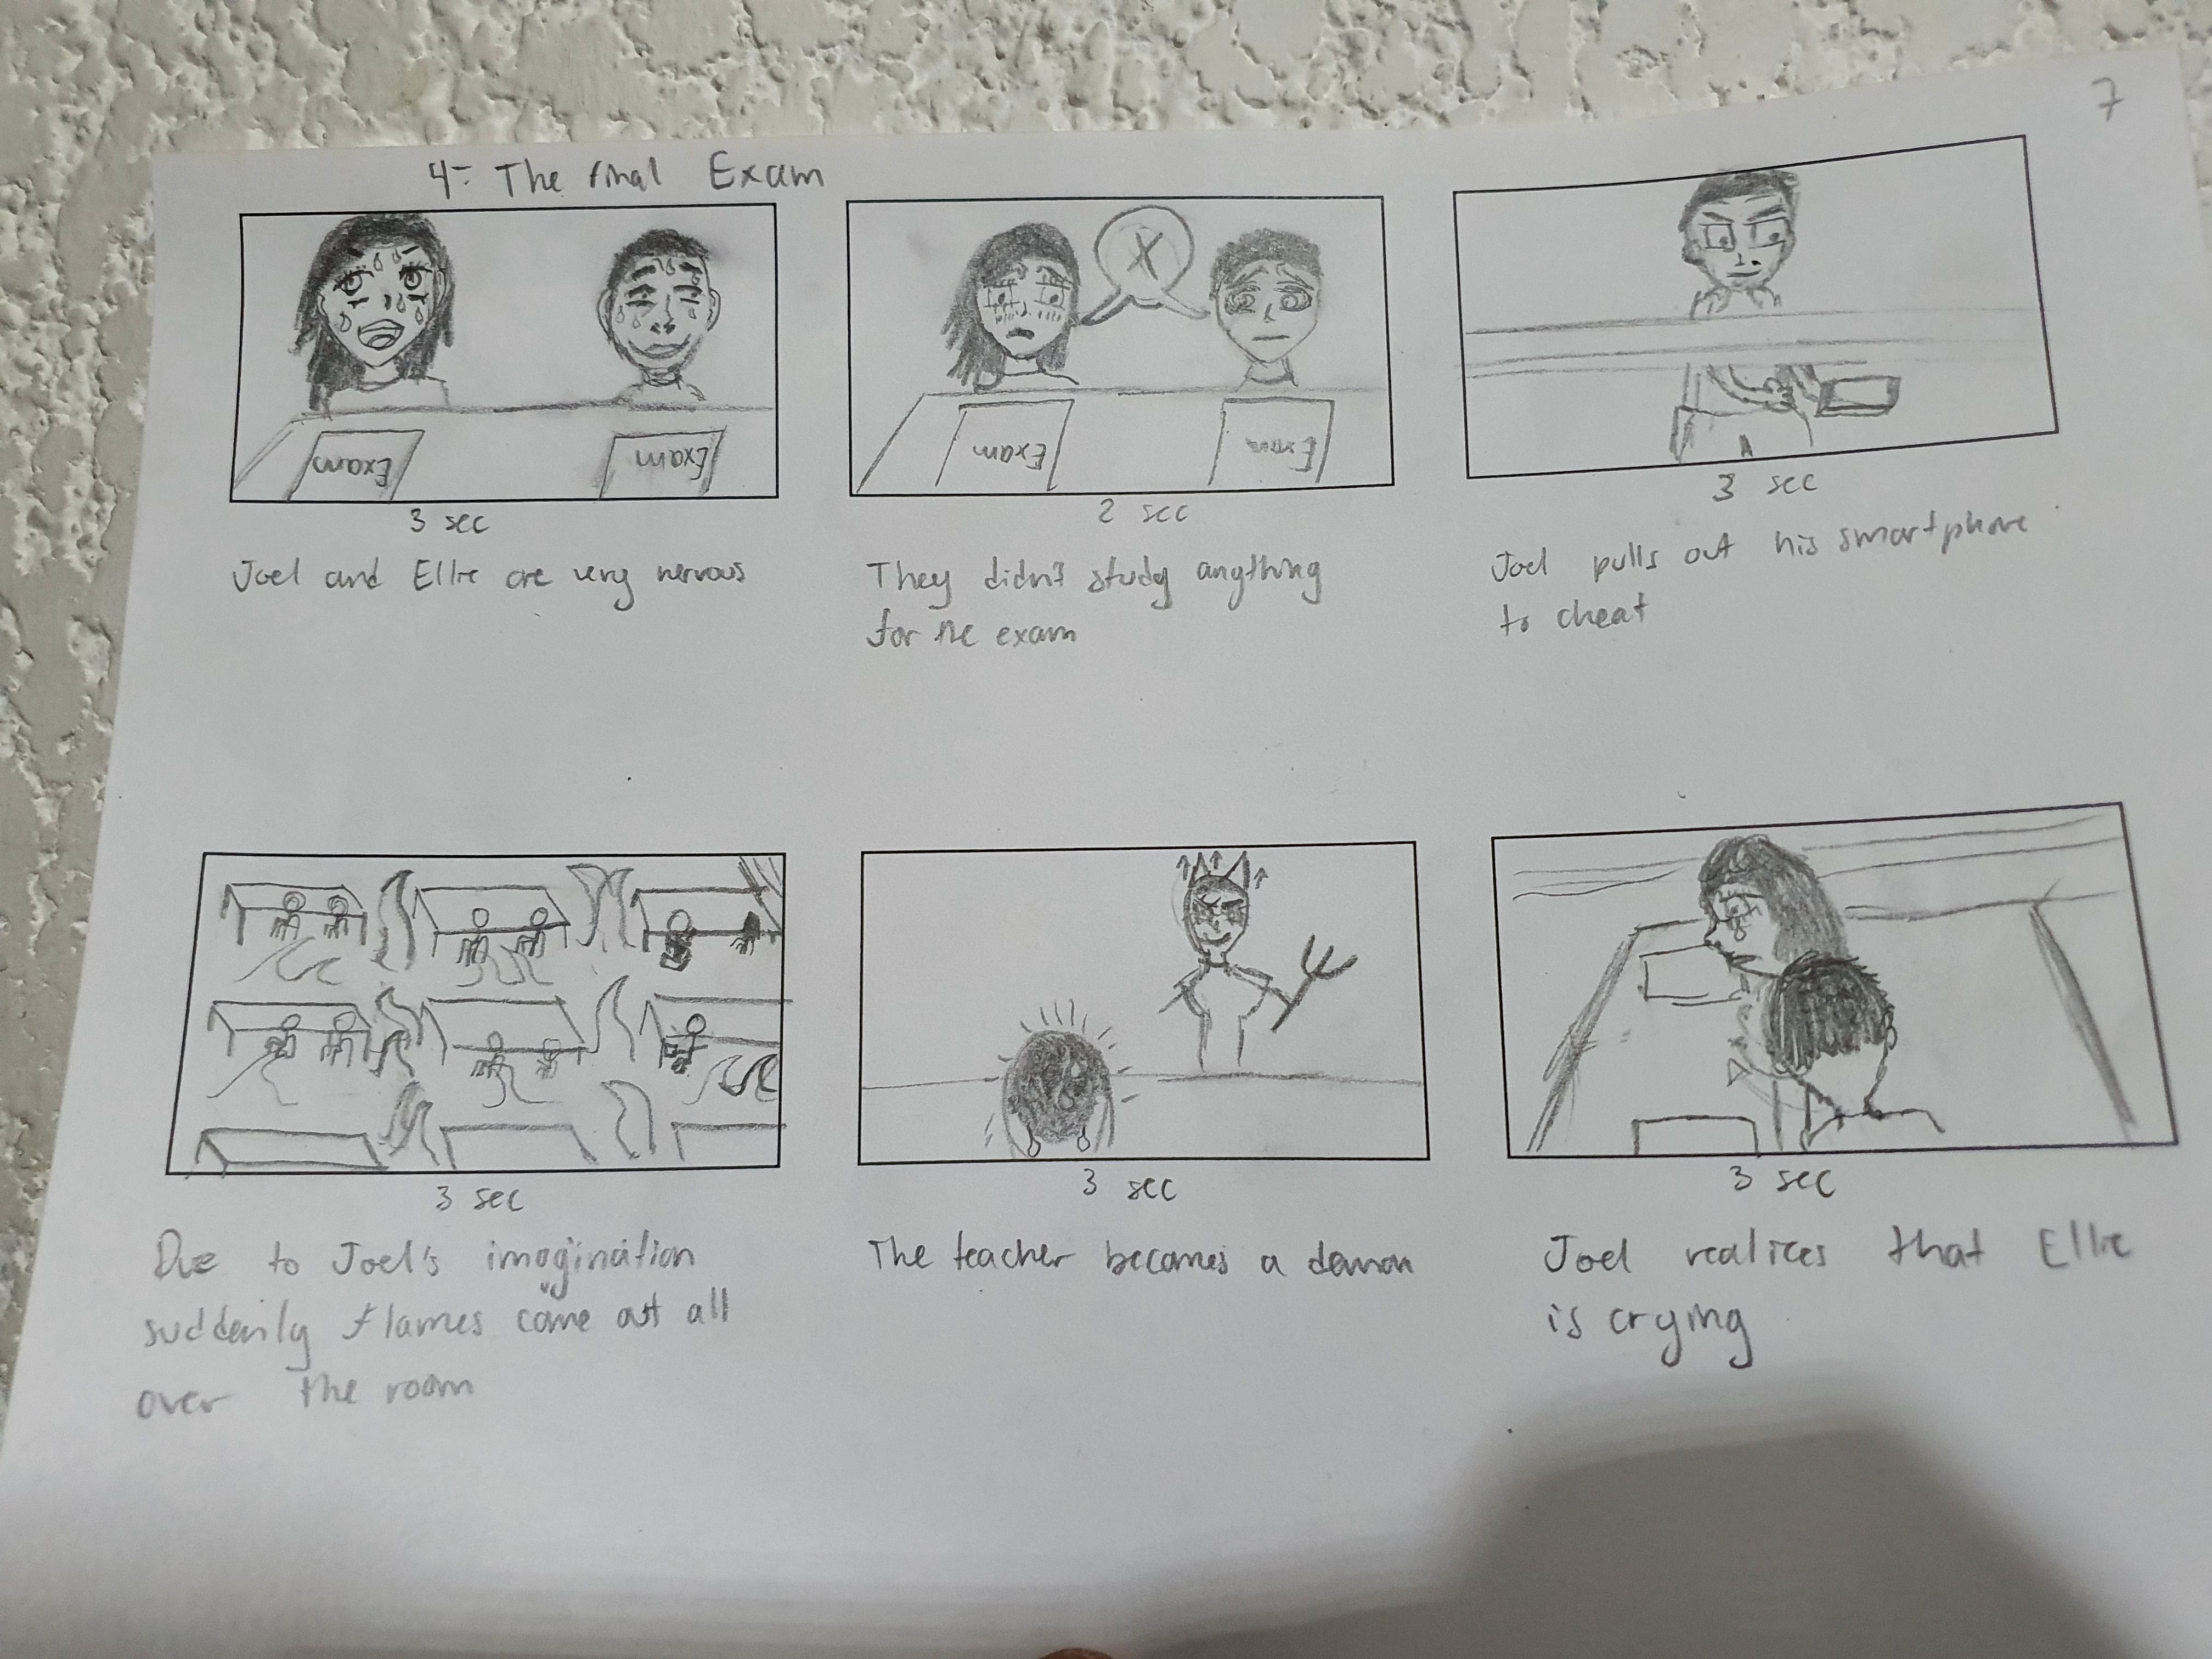 7
4- The final Exam
Exam
Exam
3 sec
Joel and Ellie are very nervous
X
Exam
Exam
2 sec
They didn't study anything
for the exam
3 sec
Joel pulls out his smartphone
to cheat
3 sec
Due to Joel's imagination
suddenly flames come out all
over the room
3 sec
The teacher becomes a demon
3 sec
Joel realices that Ellie
is crying